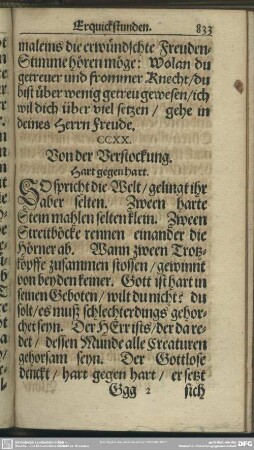 Erquickstunden. 833
maleins die erwündschte Freuden-
Stimme hören möge: Wolan du
getreuer und frommer Knecht/du
bist über wenig getreu gewesen/ich
wil dich über viel setzen / gehe in
deines Herrn Freude.
CCXX.
Von der Verstockung.
Hart gegen hart.
SO spricht die Welt/gelingt ihr
aber selten. Zween harte
Stein mahlen selten klein. Zween
Streitböcke rennen einander die
Hörner ab. Wann zween Trotz-
köpffe zusammen stossen/gewinnt
von beyden keiner. Gott ist hart in
seinen Geboten/wilt du nicht? du
solt/es muß schlechterdings gehor-
chet seyn. Der HErr ists/der da re-
det / dessen Munde alle Creaturen
gehorsam seyn. Der Gottlose
denckt/hart gegen hart/er setzt
Ggg 2 sich
DFG